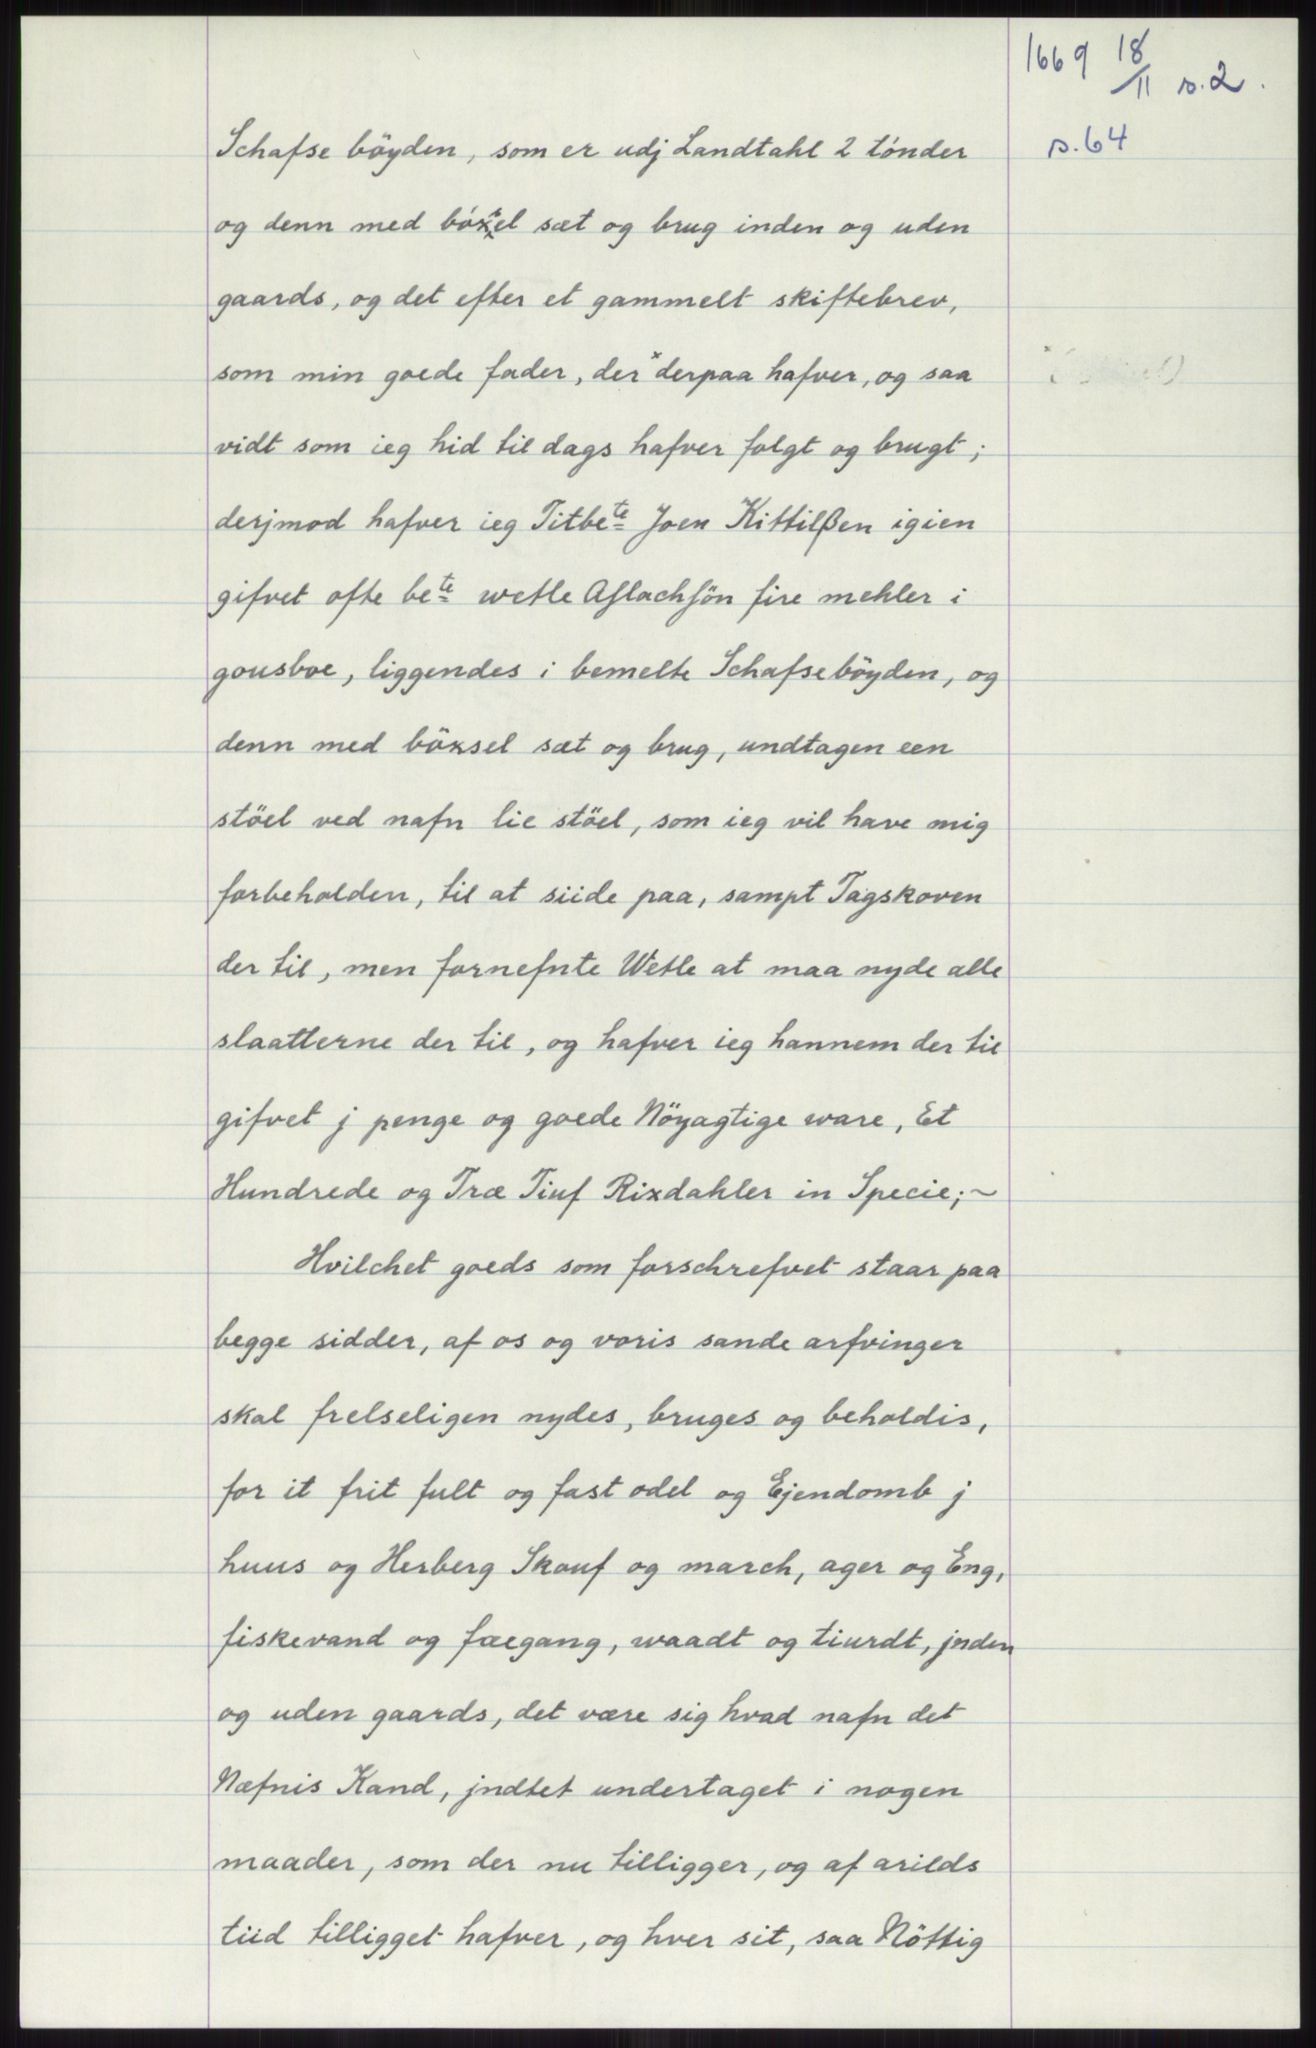 1669 18/11 s.2.
s.64
Schafse böyden, som er udj Landtahl 2 tónder
og denn med bóxel sæt og brug inden og uden
gaards, og det efter et gammelt skiftebrev,
som min goede fader, der × derpaa hafver, og saa
vidt som ieg hid til dags hafver folgt og brugt;
derjmod hafver ieg Titbete Joen Kittilßen igien
gifvet ofte bete wetle Aslachsön fire mehler i
gousboe, liggendes i bemelte Schafseböyden, og
denn med böxsel sæt og brug, undtagen een
stöel ved nafn lie stöel, som ieg vil have mig
forbeholden, til at siide paa, sampt Tagskoven
der til, men fornefnte Wetle at maa nyde alle
slaatterne der til, og hafver ieg hannem der til
gifvet j penge og goede Nöyagtige ware, Et
Hundrede og Træ Tiuf Rixdahler in Specie;~
Hvilchet goeds som forschrefvet staar paa
begge sidder, af os og voris sande arfvinger
skal frelseligen nydes, bruges og beholdis,
for it frit fult og fast odel og Ejendomb j
huus og Herberg Skouf og march, ager og Eng,
fiskevand og fæegang, waadt og tiurdt, jnden
og uden gaards, det være sig hvad nafn det
Næfnis Kand, jndtet undertaget i nogen
maader, som der nu tilligger, og af arilds
tiid tilligget hafver, og hver sit, saa Nöttig